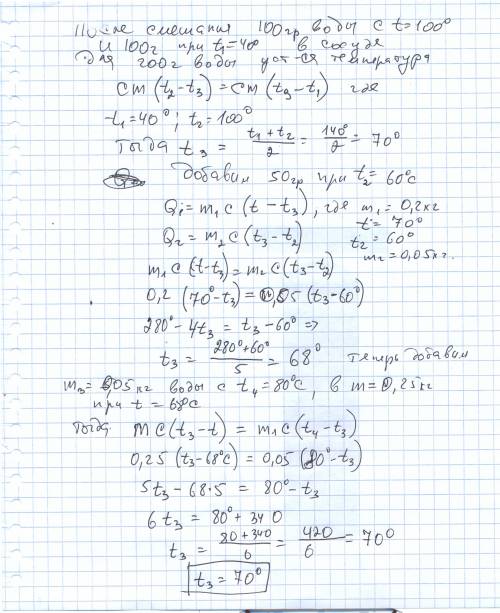 После смешания 100гр воды с t=100°
и 100г при t₁=40° в сосуде
для 200г воды уст-ся температура
cm(t₂-t₃)=cm(t₃-t₁) где
t₁=40°; t₂=100°
Тогда t₃ = (t₁+t₂)/2 = 140°/2 = 70°
Добавим 50гр при t₂=60°с
Q₁=m₁c(t-t₃), где m₁=0,2кг
t=70°
Q₂=m₂c(t₃-t₂)
t₂=60°
m₂=0,05кг.
m₁c(t-t₃)=m₂c(t₃-t₂)
0,2(70°-t₃)=0,05(t₃-60°)
280°-4t₃=t₃-60° =>
t₃ = (280°+60°)/5 = 68° теперь добавим
m₃=0,05кг воды с t₄=80°с, в m=0,25кг
при t=68°с
Тогда mc(t₃-t)=m₁c(t₄-t₃)
0,25(t₃-68°с)=0,05(80°-t₃)
5t₃-68·5=80°-t₃
6t₃=80°+340
t₃ = (80+340)/6 = 420/6 = 70°
t₃=70°